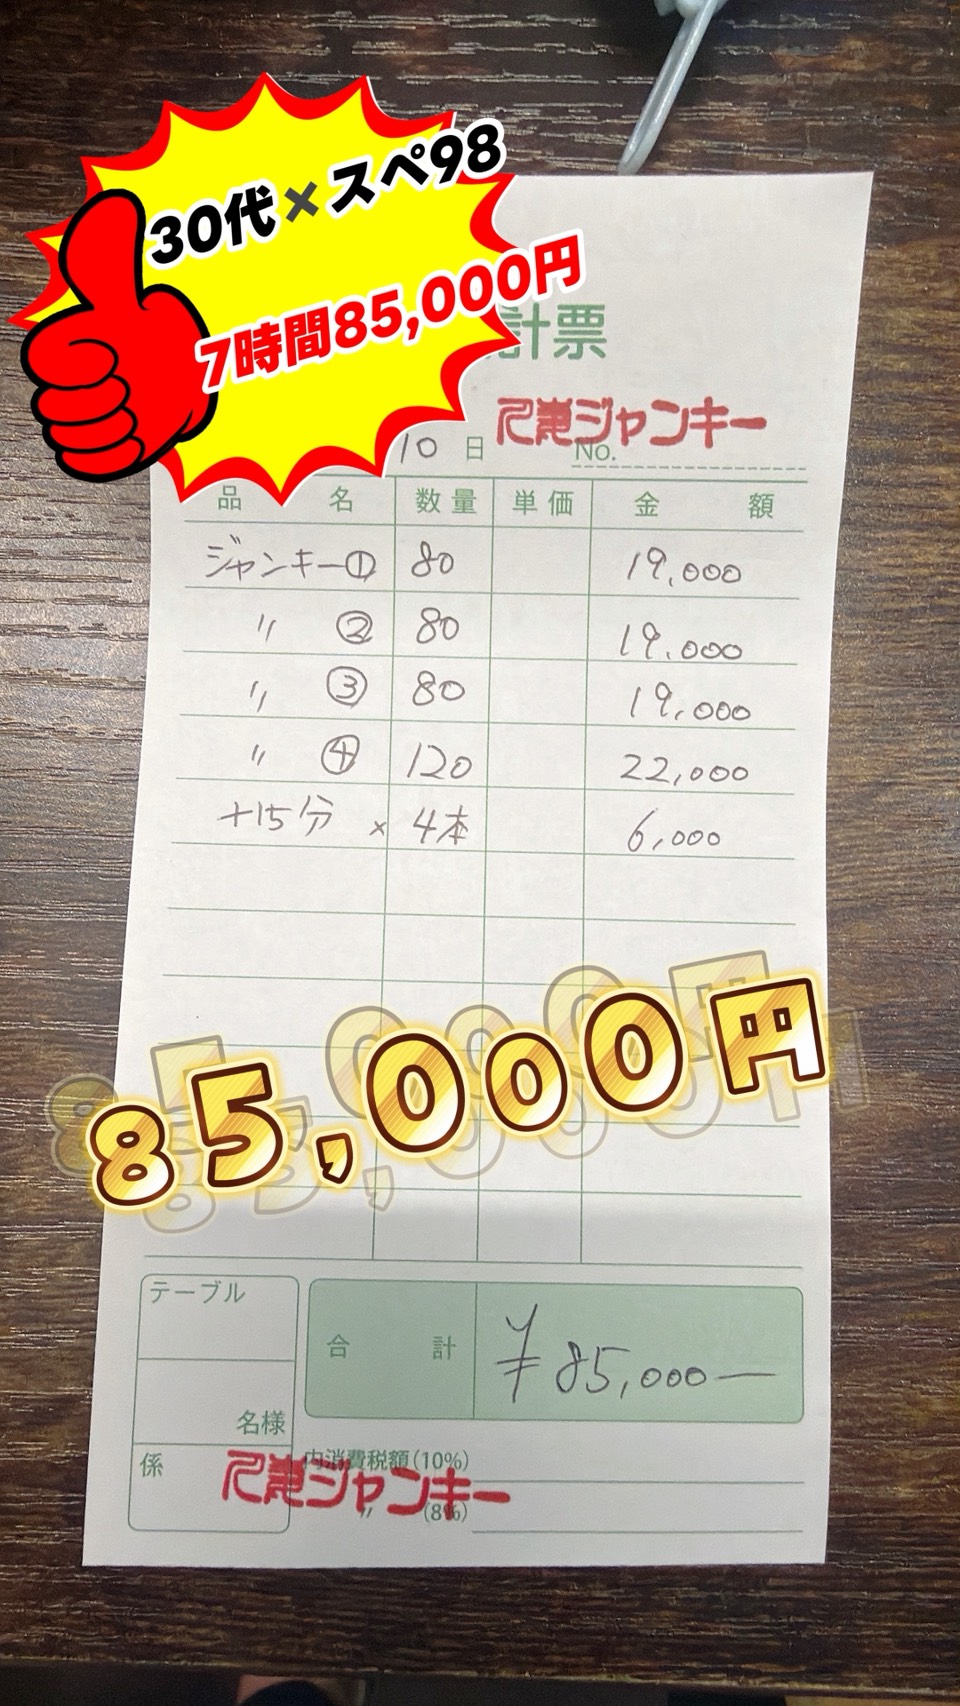 30代×スペ98
7時間85,000円
計票
ジャンキー
10日 No.
品名 数量 単価 金額
ジャンキー① 80 19,000
〃 ② 80 19,000
〃 ③ 80 19,000
〃 ④ 120 22,000
+15分 × 4本 6,000
85,000円
テーブル
合計 ¥85,000―
名様
係
内消費税額(10%)
ジャンキー
〃 (8%)